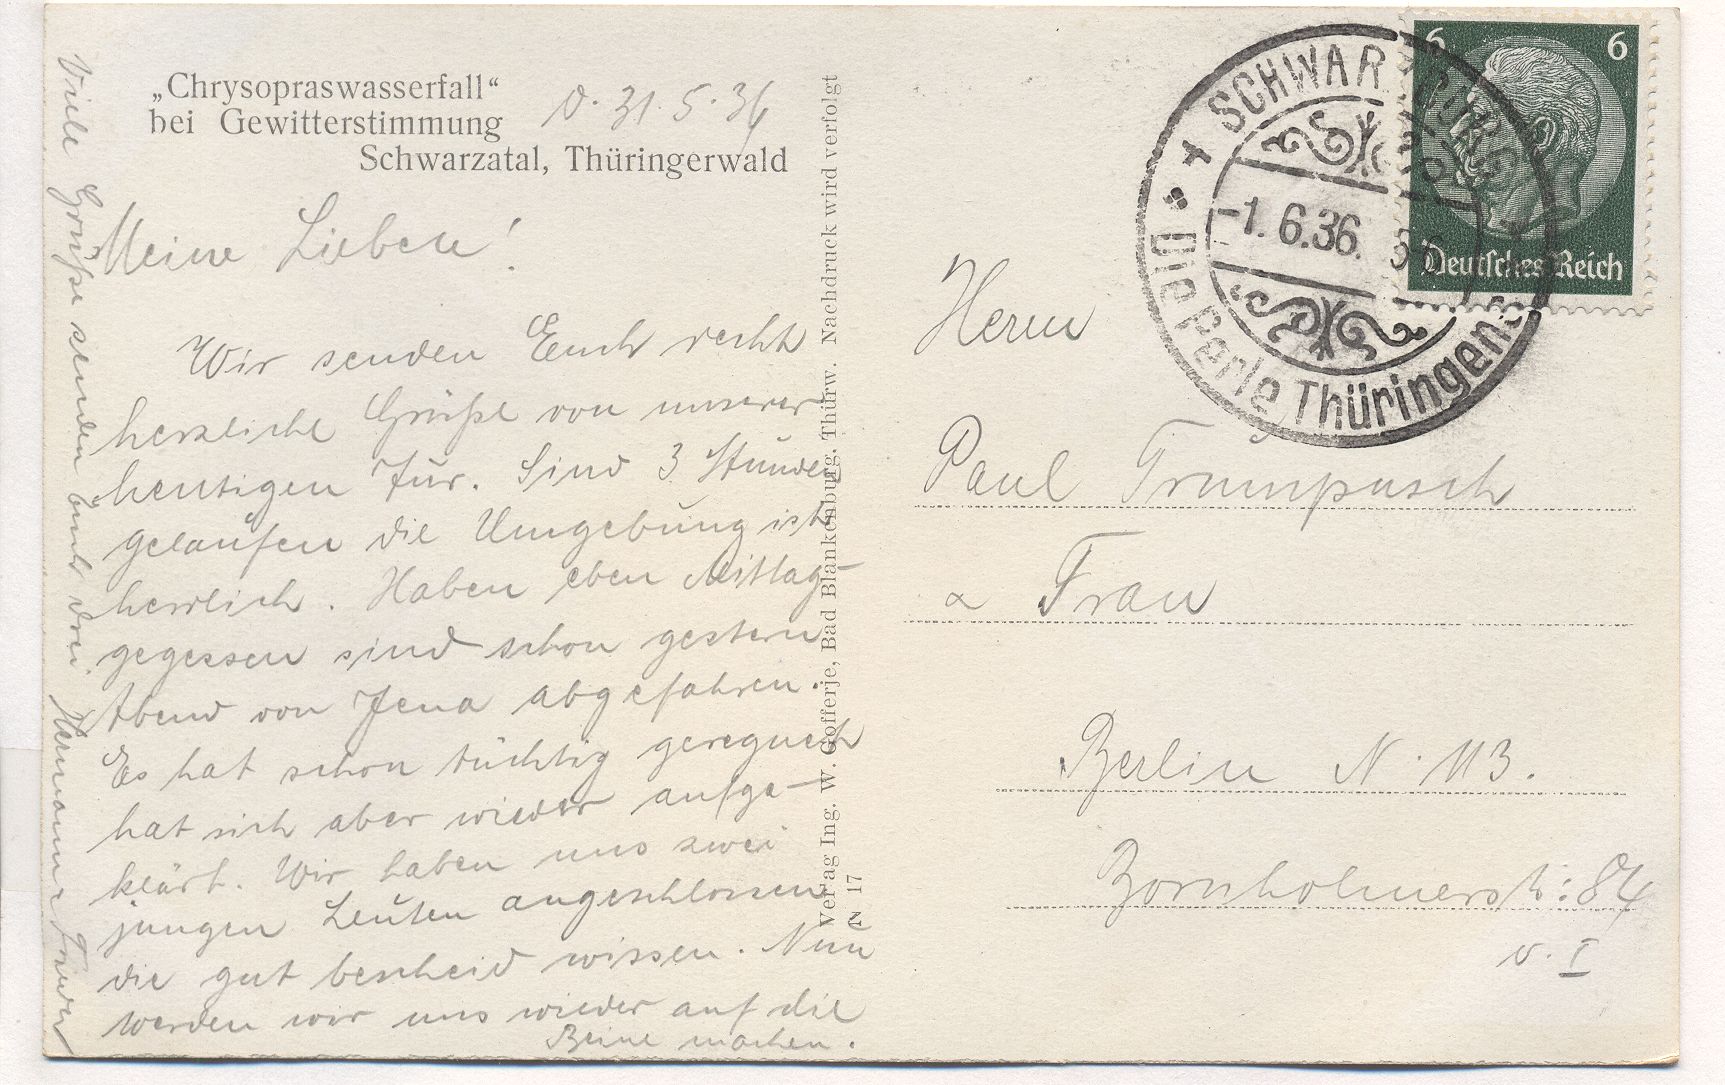 „Chrysopraswasserfall“
bei Gewitterstimmung
Schwarzatal, Thüringerwald
d. 31.5.36
Meine Lieben!
Wir senden Euch recht
herzliche Grüße von unserer
heutigen Tur. Sind 3 Stunden
gelaufen die Umgebung ist
herrlich. Haben eben Mittag-
gegessen sind schon gestern
Abend von Jena abgefahren.
Es hat schon tüchtig geregnet
hat sich aber wieder aufge-
klärt. Wir haben uns zwei
jungen Leuten angeschlossen
die gut bescheid wissen. Nun
werden wir uns wieder auf die
Beine machen.
Viele Grüße senden Euch drei
Verlag Ing. W. Gofferje, Bad Blankenburg, Thürw. Nachdruck wird verfolgt
N 17
6 6
Deutsches Reich
SCHWARZBURG
-1.6.36.
Die Perle Thüringens
Herrn
Paul Trumpusch
u Frau
Berlin N. 113.
Bornholmerstr: 84
v. I